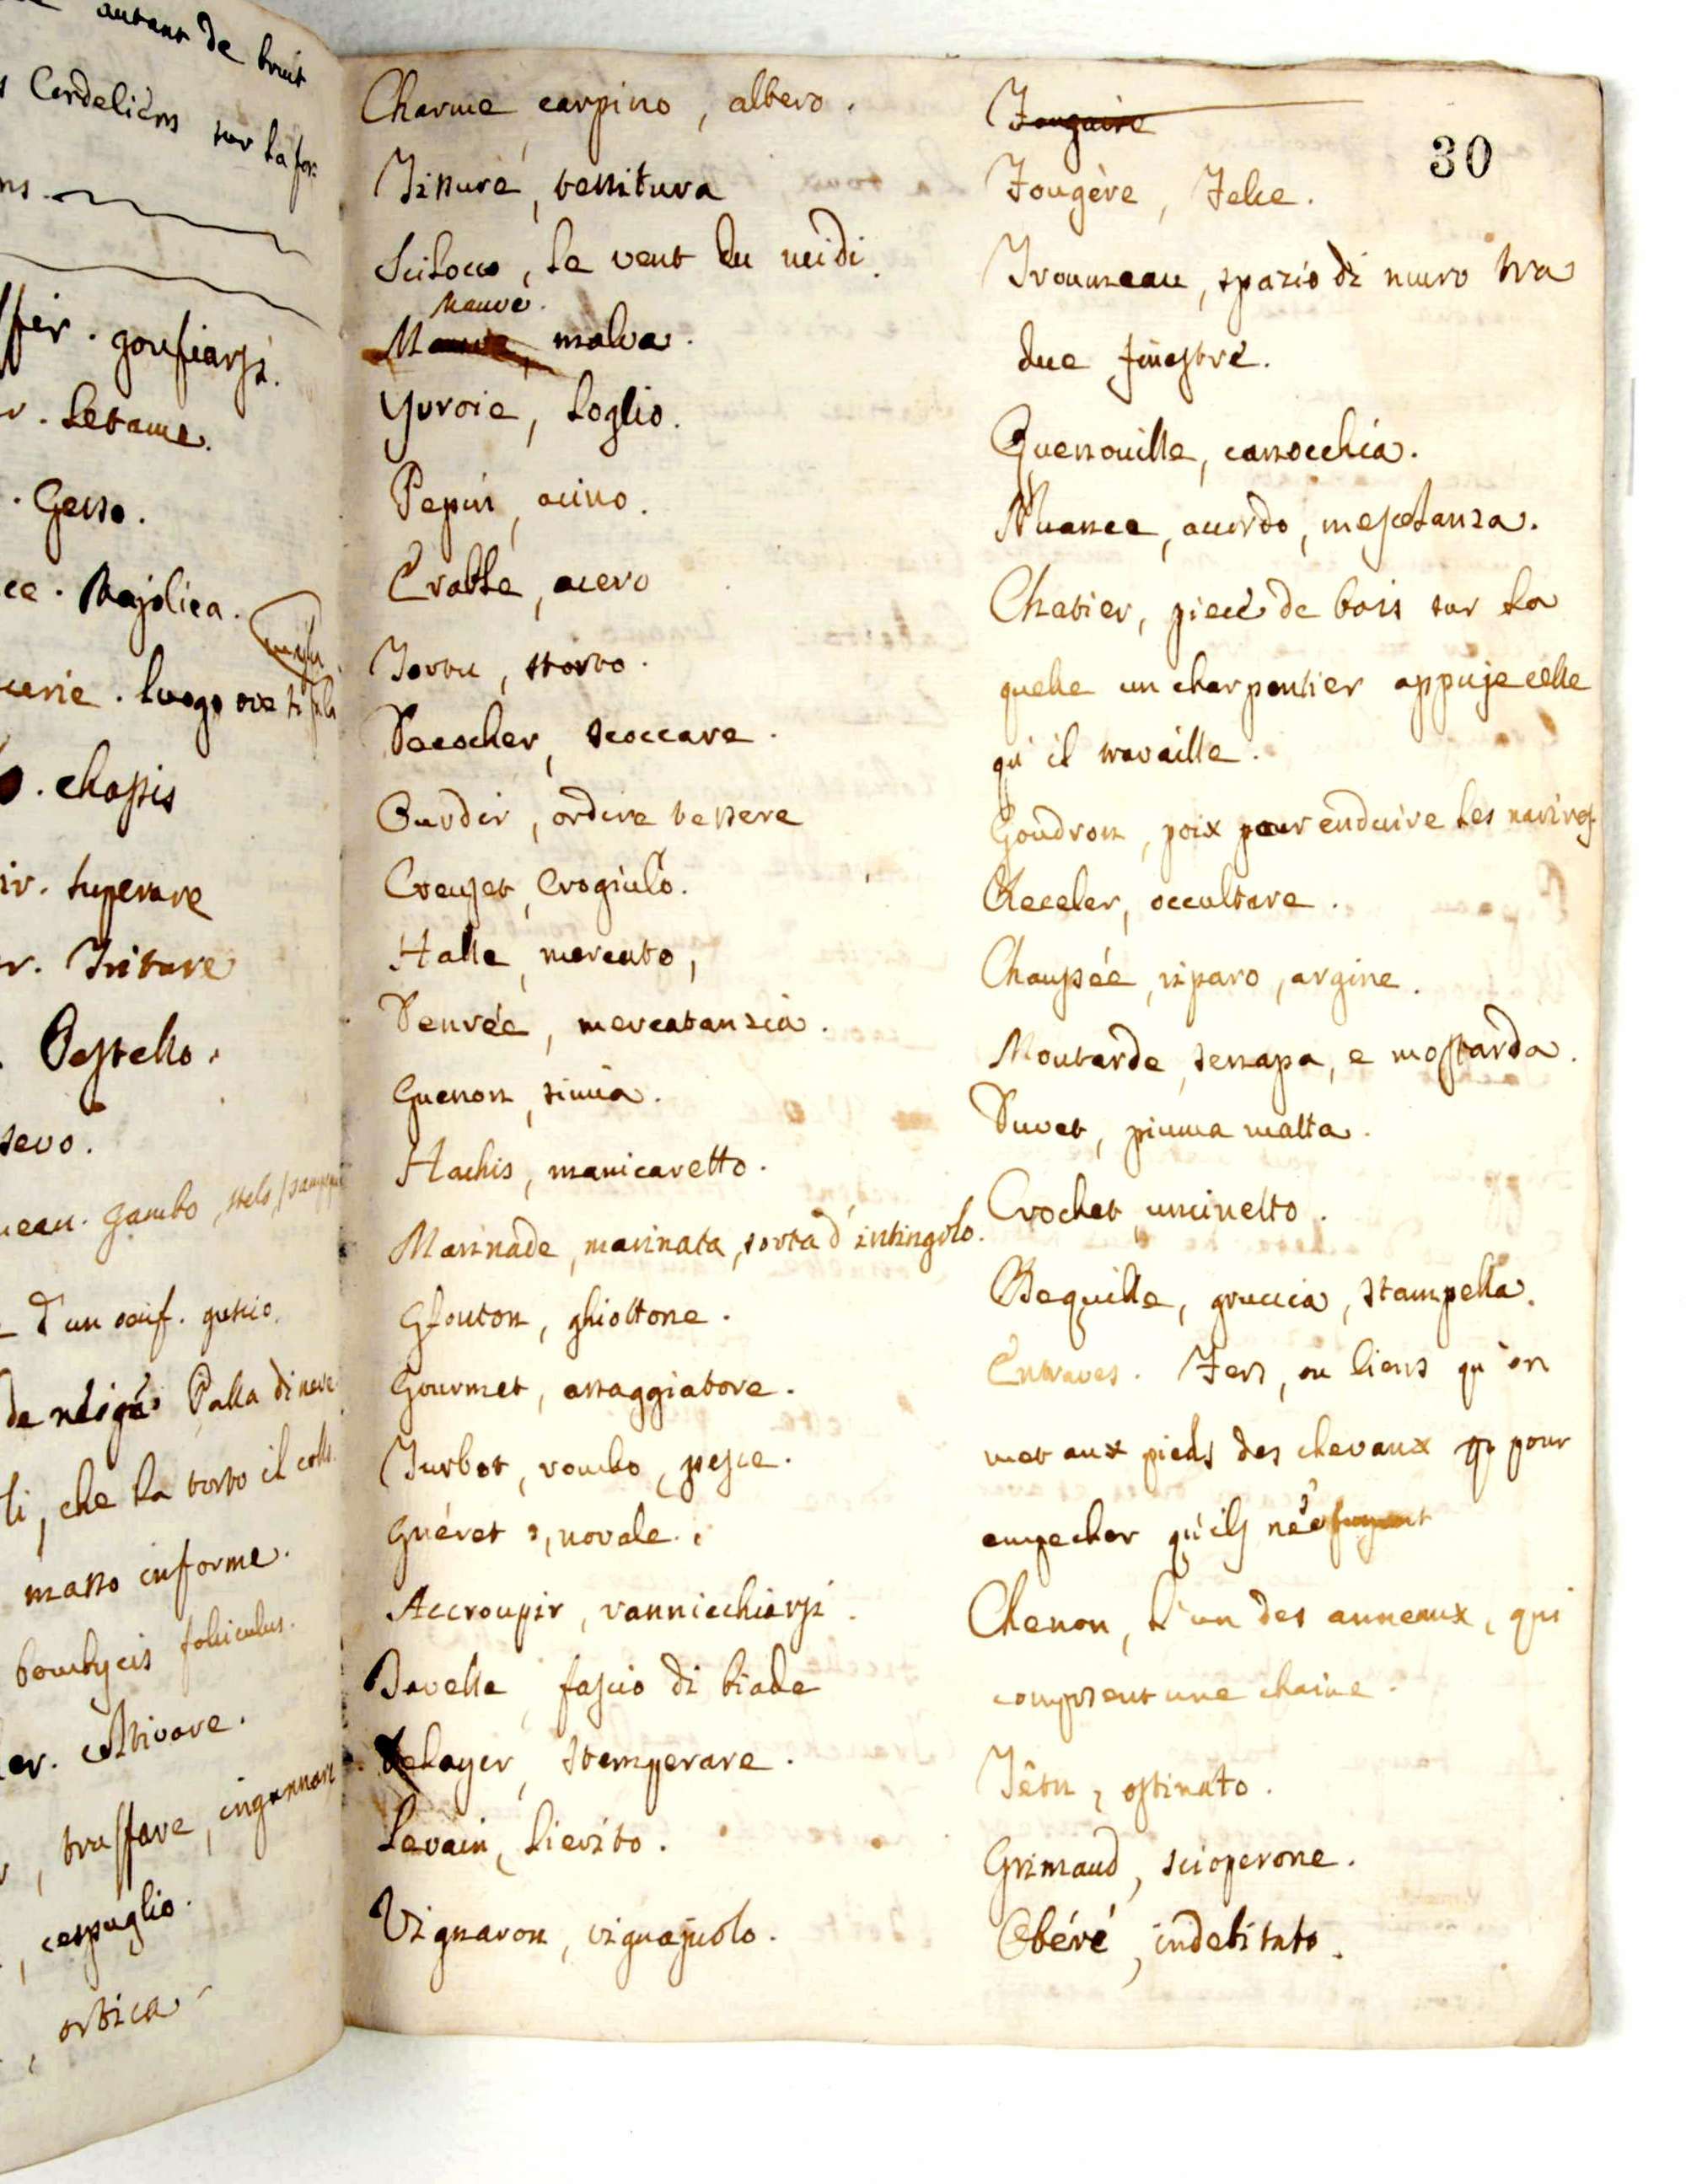 autant de bruit
Cordeliers sur la for
ns.
ffer. gonfiarsi.
r. Letame.
. Gesso.
ce. Majolica.
cerie. Luogo ove si fila
. chassis
ir. superare
r. Tritare
. Pestello.
sevo.
eau. gambo, stelo,
d'un oeuf. guscio.
de neige Palla di neve
li, che ha torto il collo
masso informe.
bombycis foliculus.
er. coltivare.
, truffare, ingannare
, cespuglio.
, ortica
Charme, carpino, albero.
Tissure, tessitura
Scilocco, Le vent du midi.
Mauve.
Mauve, malva.
Yvroie, Loglio.
Pepin, acino.
Erable, acero
Tortu, storto.
Decocher, scoccare.
Ourdir, ordire tessere
Creuset, Crogiulo.
Halle, mercato,
Denrée, mercatanzia.
Guenon, simia.
Hachis, manicaretto.
Marinade, marinata, sorta d'intingolo.
Glouton, ghiottone.
Gourmet, assaggiatore.
Turbot, rombo, pesce.
Guéret, novale.
Accroupir, rannicchiarsi.
Javelle, fascio di biade
delayer, stemperare.
Levain, Lievito.
Vignaron, vignajuolo.
30
Fougaire
Fougère, Felce.
Troumeau, spazio di muro tra
due finestre.
Quenouille, canocchia.
Nuance, acordo, mescolanza.
Chatier, piece de bois sur la
quelle un charpentier appuje celle
qu'il travaille.
Goudron, poix pour enduire les navires.
Receler, occultare.
Chaussée, riparo, argine.
Moutarde, senapa, e mostarda.
Duvet, piuma matta.
Crochet, uncinetto.
Bequille, gruccia, stampella.
Entraves. Fers, ou liens qu'on
met aux pieds des chevaux pour
empecher qu'ils ne s'e
Chenon, L'un des anneaux, qui
composent une chaine.
Têtu, ostinato.
Grimaud, scioperone.
Obéré, indebitato.